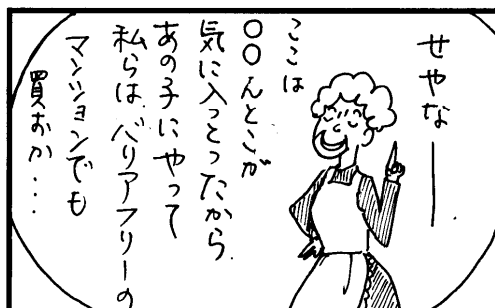 せやなー
ここは
〇〇んとこが
気に入っとったから
あの子にやって
私らは、バリアフリーの
マンションでも
買おか・・・